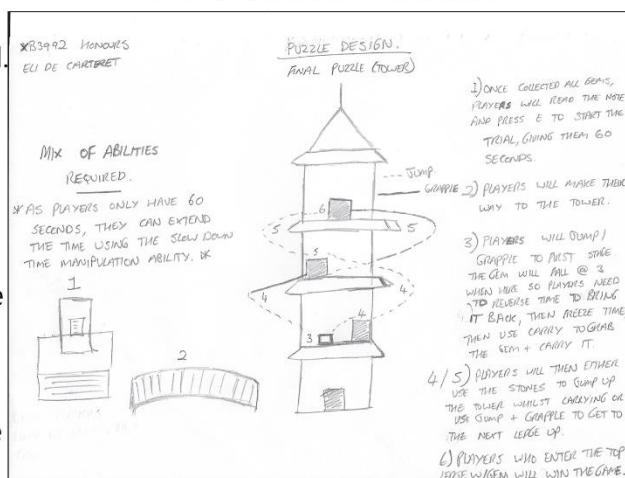 XB3992 HONOURS
ELI DE CARTERET
PUZZLE DESIGN.
FINAL PUZZLE (TOWER)
MIX OF ABILITIES
REQUIRED.
* AS PLAYERS ONLY HAVE 60
SECONDS, THEY CAN EXTEND
THE TIME USING THE SLOW DOWN
TIME MANIPULATION ABILITY. *
1
2
JUMP.
GRAPPLE
6
5
5
5
4
4
4
3
1) ONCE COLLECTED ALL GEMS,
PLAYERS WILL READ THE NOTE
AND PRESS E TO START THE
TRIAL, GIVING THEM 60
SECONDS.
2) PLAYERS WILL MAKE THEIR
WAY TO THE TOWER.
3) PLAYERS WILL JUMP/
GRAPPLE TO FIRST STAGE
THE GEM WILL FALL @ 3
WHEN HERE SO PLAYERS NEED
TO REVERSE TIME TO BRING
IT BACK, THEN FREEZE TIME
THEN USE CARRY TO GRAB
THE GEM + CARRY IT.
4/5) PLAYERS WILL THEN EITHER
USE THE STONES TO JUMP UP
THE TOWER WHILST CARRYING OR
USE JUMP + GRAPPLE TO GET TO
THE NEXT LEDGE UP.
6) PLAYERS WHO ENTER THE TOP
LEDGE W/GEM WILL WIN THE GAME.